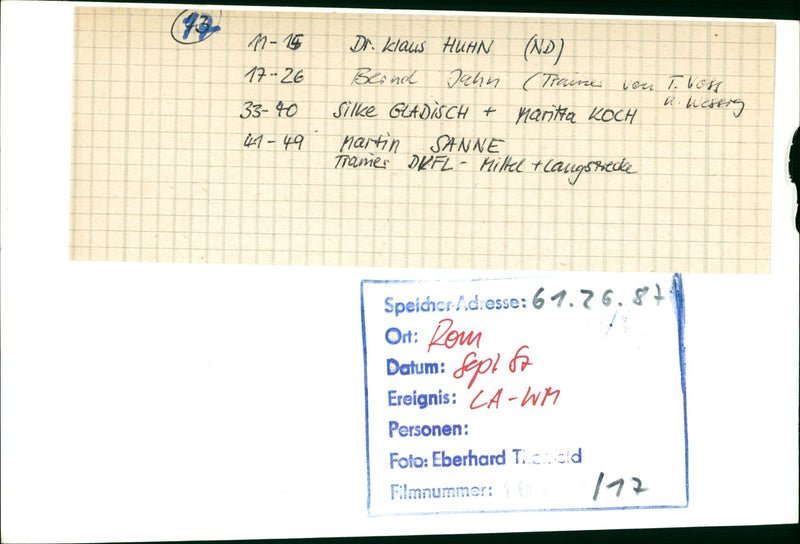 11-15 Dr. Klaus HUHN (ND)
17-26 Bernd Jahn (Trainer von T. Voss
33-40 Silke GLADISCH + Maritta KOCH
41-49 Martin SANNE
Trainer DVFL - Mittel + Langstrecke
Speicher-Adresse: 61.26.87
Ort: Rom
Datum: Sept 87
Ereignis: LA-WM
Personen:
Foto: Eberhard
Filmnummer: /17